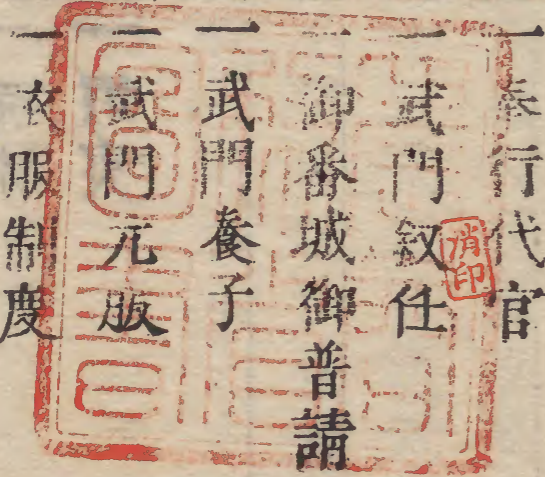 一奉行代官
一武門叙任
一御番城御普請
一武門養子
一武門元服
一衣服制度
消印